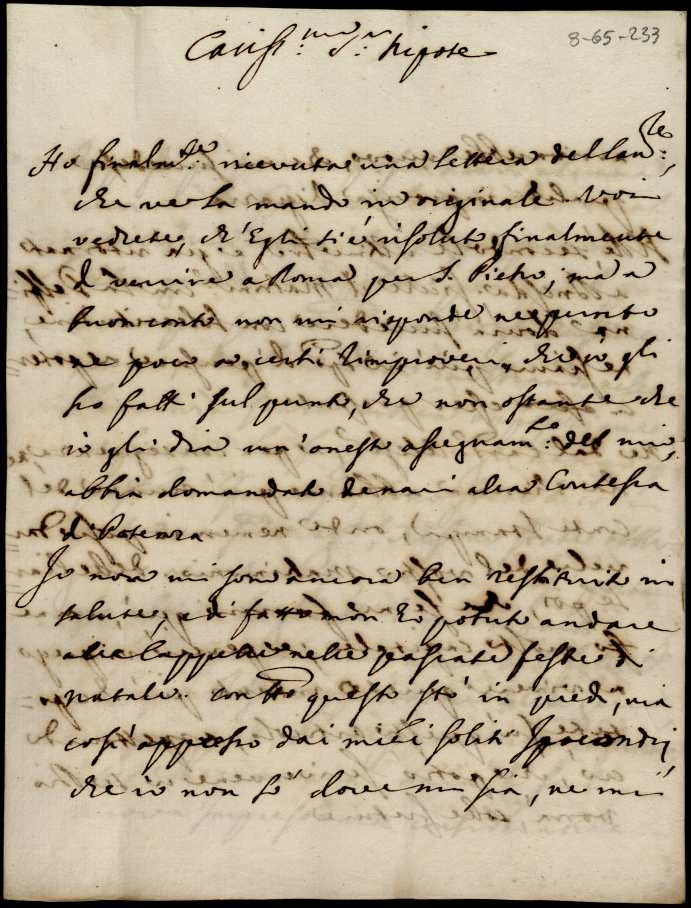 8-65-233
Cariss:mo Sr: Nipote
Ho finalm:te ricevuta una lettera dell'
che ve la mando in originale. Voi
vedrete, ch'Egli si è risoluto finalmente
di venire a Roma per S. Pietro; ma a
buon conto non mi risponde ne punto
ne poco a certi rimproveri, che io gli
ho fatti sul punto, che non ostante che
io gli dia un'onesto assegnam:to del mio,
abbia domandato denari alla Contessa
di Potenza
Io non mi sono ancora ben restituito in
salute, e di fatto non ho potuto andare
alle Cappelle nelle passate feste di
natale. con tto questo stò in piedi, ma
così appresso dai miei soliti Ipocondrj,
che io non sò dove mi sia, ne mi